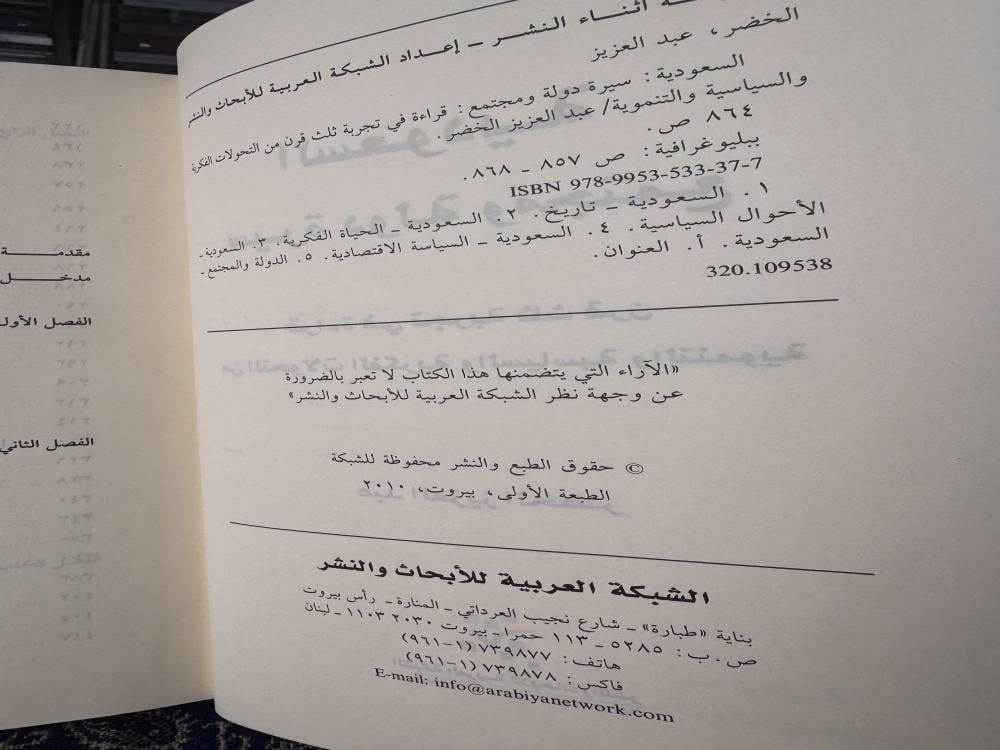 أثناء النشر - إعداد الشبكة العربية للأبحاث والنشر
الخضر، عبد العزيز
السعودية: سيرة دولة ومجتمع: قراءة في تجربة ثلث قرن من التحولات الفكرية
والسياسية والتنموية/ عبد العزيز الخضر.
٨٦٤ ص.
ببليوغرافية: ص ٨٥٧ - ٨٦٨.
ISBN 978-9953-533-37-7
١. السعودية - تاريخ. ٢. السعودية - الحياة الفكرية. ٣. السعودية -
الأحوال السياسية. ٤. السعودية - السياسة الاقتصادية. ٥. الدولة والمجتمع -
السعودية. أ. العنوان.
320.109538
«الآراء التي يتضمنها هذا الكتاب لا تعبر بالضرورة
عن وجهة نظر الشبكة العربية للأبحاث والنشر»
© حقوق الطبع والنشر محفوظة للشبكة
الطبعة الأولى، بيروت، ٢٠١٠
الشبكة العربية للأبحاث والنشر
بناية «طبارة» - شارع نجيب العرداتي - المنارة - رأس بيروت
ص.ب: ٥٢٨٥ - ١١٣ حمرا - بيروت ٢٠٣٠ ١١٠٣ - لبنان
هاتف: ٧٣٩٨٧٧ (١-٩٦١)
فاكس: ٧٣٩٨٧٨ (١-٩٦١)
E-mail: info@arabiyanetwork.com
مقدمة
مدخل
الفصل الأول
الفصل الثاني